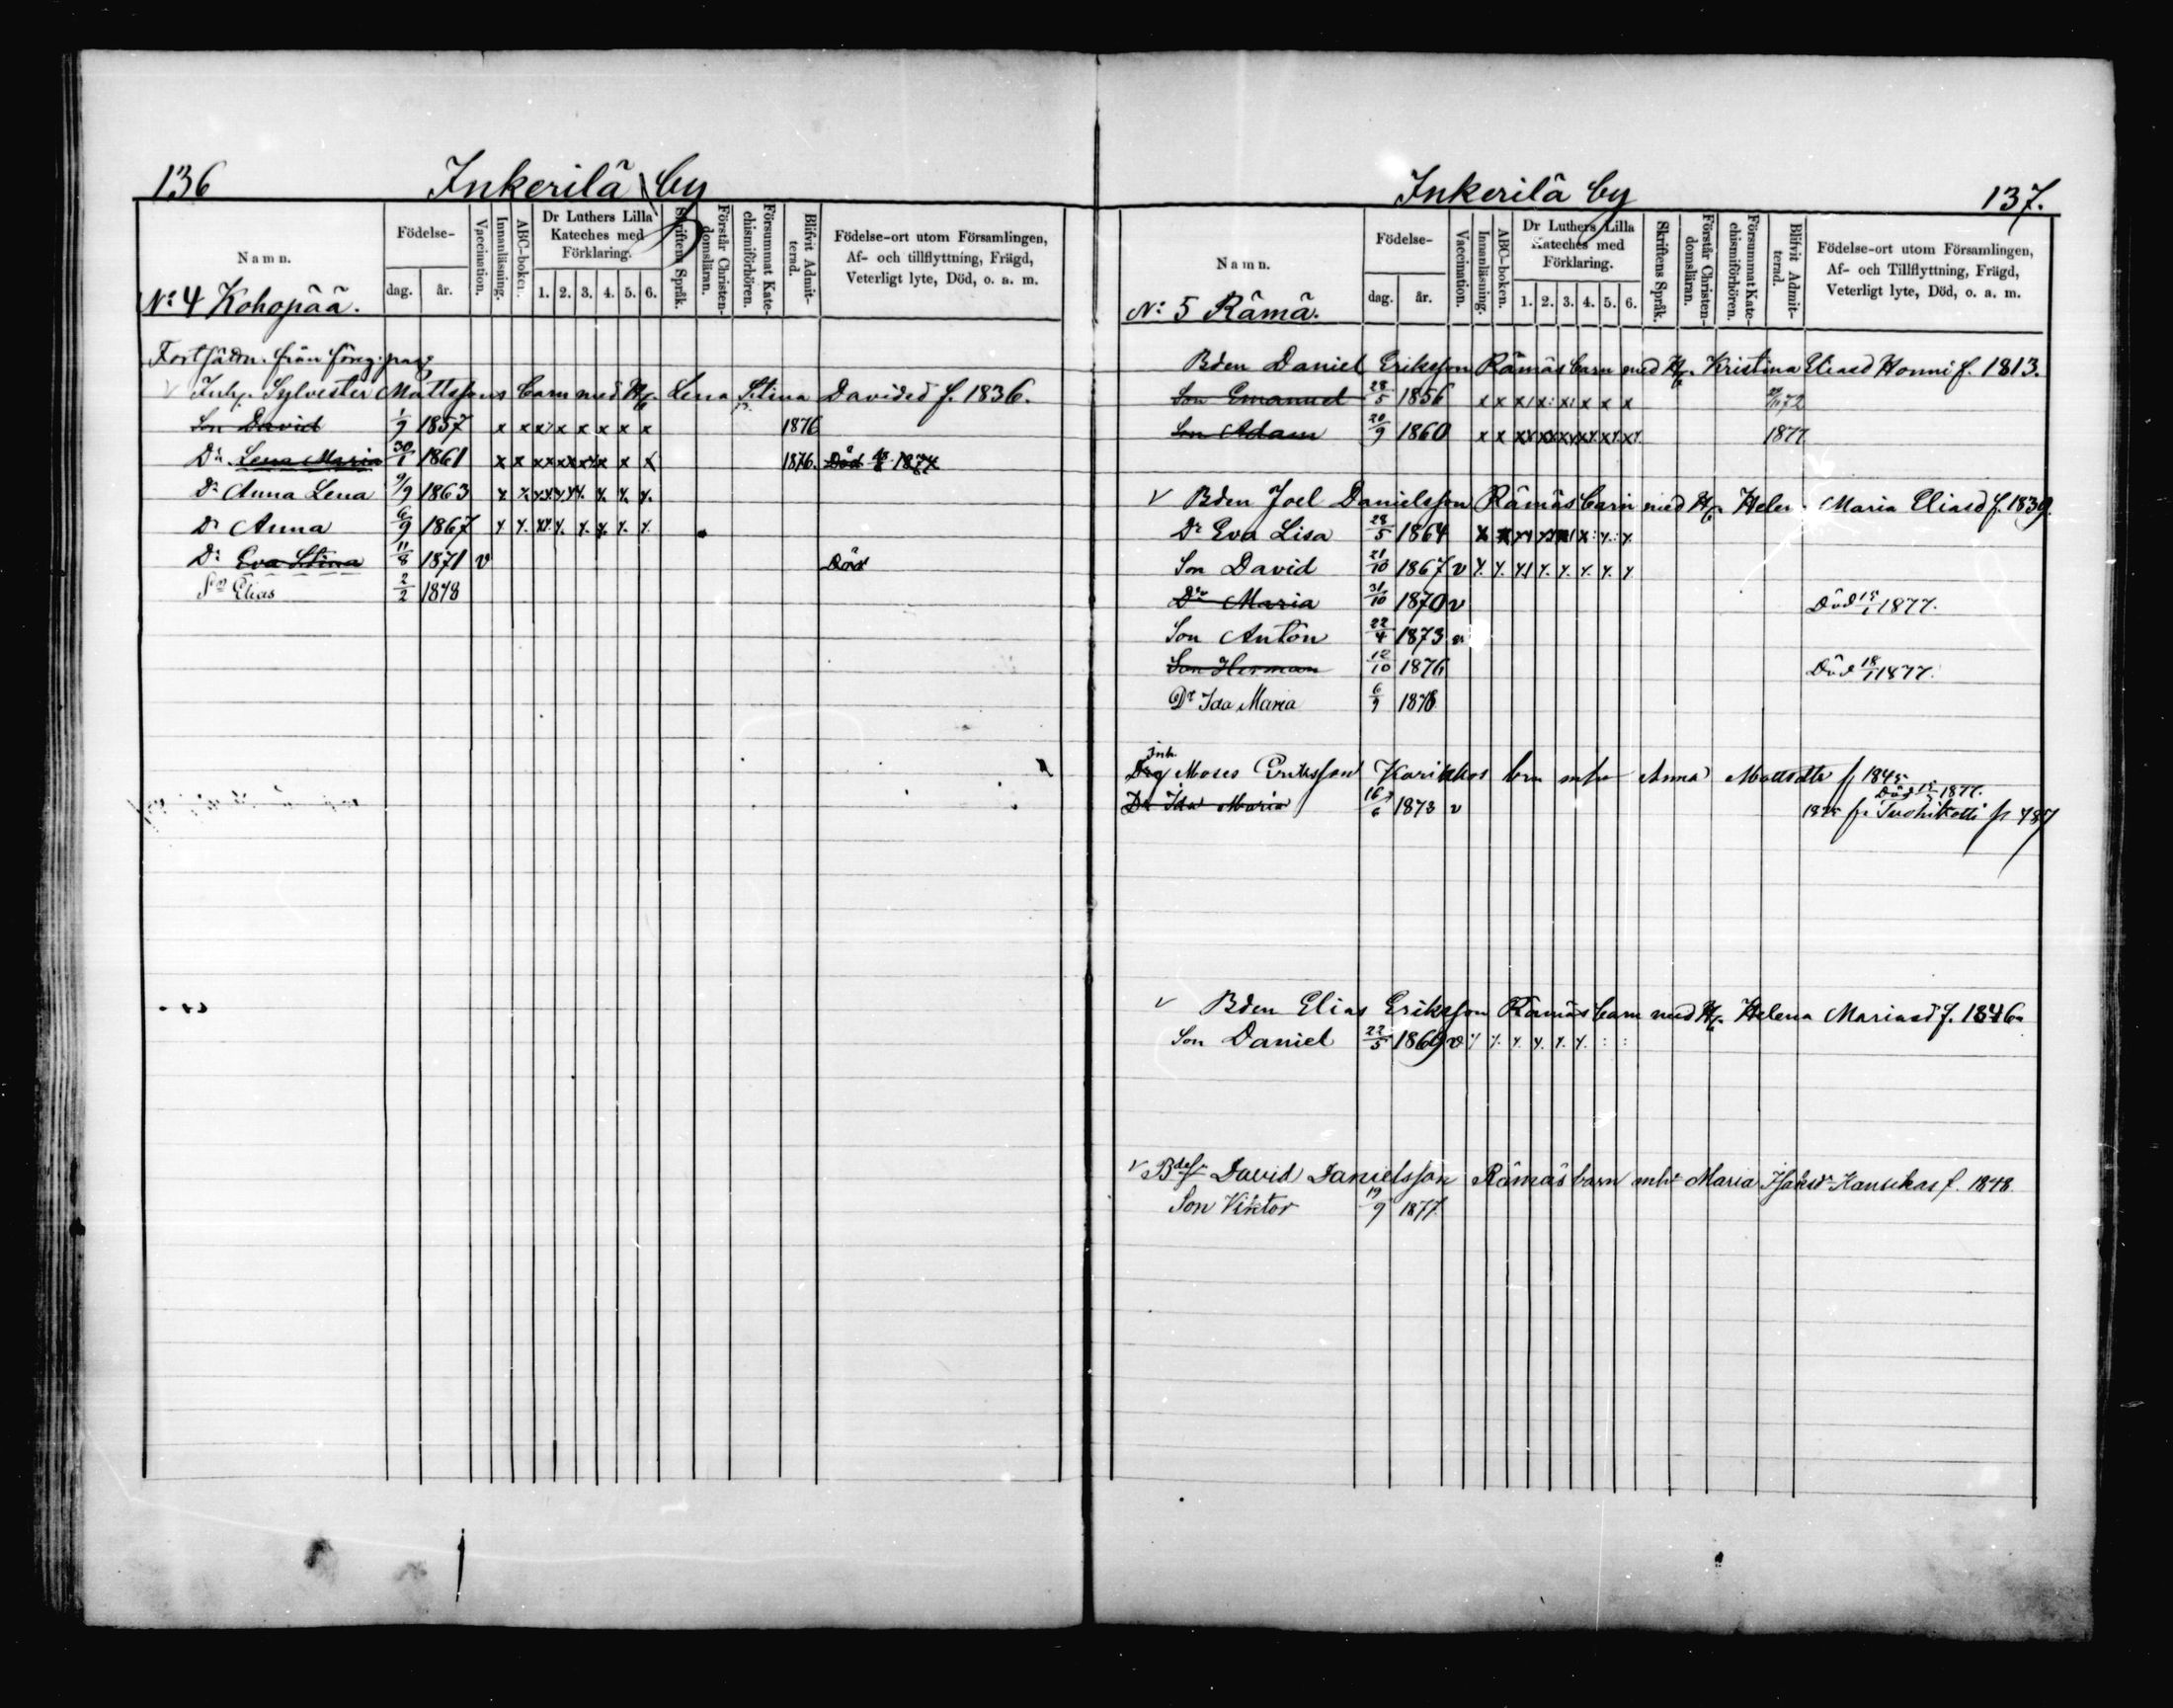 136 Inkerilä by
Namn. Födelse- dag. år. Vaccination. Innanläsning. ABC-boken. Dr Luthers Lilla Kateches med Förklaring. 1. 2. 3. 4. 5. 6. Skriftens Språk. Förstår Christendomsläran. Försummat Katechismiförhören. Blifvit Admitterad. Födelse-ort utom Församlingen, Af- och tillflyttning, Frägd, Veterligt lyte, Död, o. a. m.
No: 4 Kohopää.
Fortsättn. från föreg. pag.
v Inh. Sylvester Mattssons barn med H. Lena Stina Davidsd f. 1836.
Son David 1/9 1857 x x x x x x x x 1876
Dr. Lena Maria 30/1 1861 x x xx xx xx x x x 1876. Död 1874
Dr Anna Lena 9/9 1863
Dr Anna 6/9 1867
Dr Eva Stina 11/8 1871 v Död
Son Elias 2/2 1878
Inkerilä by 137.
Namn. Födelse- dag. år. Vaccination. Innanläsning. ABC-boken. Dr Luthers Lilla Kateches med Förklaring. 1. 2. 3. 4. 5. 6. Skriftens Språk. Förstår Christendomsläran. Försummat Katechismiförhören. Blifvit Admitterad. Födelse-ort utom Församlingen, Af- och Tillflyttning, Frägd, Veterligt lyte, Död, o. a. m.
No: 5 Rämä.
Bden Daniel Eriksson Rämäs barn med H. Kristina Eliasd Honni f. 1813.
Son Emanuel 28/5 1856 x x x x x x x x 72
Son Adam 20/9 1860 1877
v Bden Joel Danielsson Rämäs barn med H. Helen Maria Eliasd f. 1839.
Dr Eva Lisa 28/5 1864
Son David 21/10 1867 v
Dr Maria 31/10 1870 v Död 15/1 1877.
Son Anton 22/4 1873 v
Son Herman 12/10 1876 Död 18/1 1877.
Dr Ida Maria 6/9 1878
Inh. Moses Eriksson Karikkos brn mhu Anna Mattsdtr f 1845
Dr Ida Maria 16/6 1873 v Död 1877.
1875 fr Tuohikotti p 787
v Bden Elias Eriksson Rämäs barn med H. Helena Mariasd f. 1846
Son Daniel 22/5 1869 v
v Bdesn David Danielsson Rämäs barn mhu Maria Isaksdr Kansikas f. 1848
Son Viktor 19/9 1877